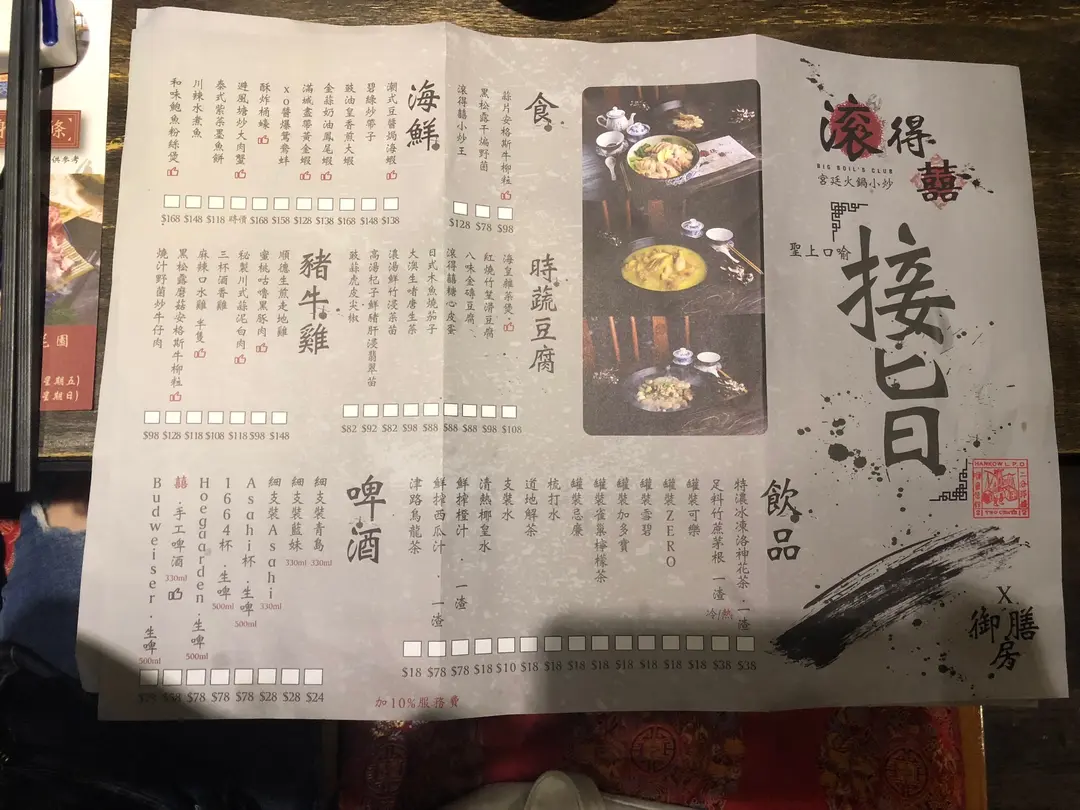 滾得囍
BIG BOIL'S CLUB
宮廷火鍋小炒
聖上口喻
接旨
HANKOW L.P.O.
X
御膳房
食
蒜片安格斯牛柳粒
$98
黑松露干煸野菌
$78
滾得囍小炒王
$128
海鮮
潮式豆醬焗海蝦
$138
碧綠炒帶子
$148
豉油皇香煎大蝦
$168
金蒜奶油鳳尾蝦
$138
滿城盡帶黃金蝦
$128
xo醬爆鴛鴦蚌
$158
酥炸桶蠔
$168
避風塘炒大肉蟹
時價
泰式紫茶墨魚餅
$118
川辣水煮魚
$148
和味鮑魚粉絲煲
$168
時蔬豆腐
海皇雜菜煲
$108
紅燒竹笙滑豆腐
$98
八味金磚豆腐
$88
滾得囍糖心皮蛋
$88
日式木魚燒茄子
$88
大澳生啫唐生菜
$98
濃湯鮮竹浸菜苗
$82
高湯杞子鮮豬肝浸翡翠苗
$92
豉蒜虎皮尖椒
$82
豬牛雞
順德生煎走地雞
$148
蜜桃咕嚕黑豚肉
$98
秘製川式蒜泥白肉
$118
三杯酒香雞
$108
麻辣口水雞 半隻
$118
黑松露蘑菇安格斯牛柳粒
$128
燒汁野菌炒牛仔肉
$98
飲品
特濃冰凍洛神花茶.一渣
$38
足料竹蔗茅根 一渣 冷/熱
$38
罐裝可樂
$18
罐裝ZERO
$18
罐裝雪碧
$18
罐裝加多寶
$18
罐裝雀巢檸檬茶
$18
罐裝忌廉
$18
梳打水
$18
道地解茶
$18
支裝水
$10
清熱椰皇水
$18
鮮搾橙汁.一渣
$78
鮮搾西瓜汁.一渣
$78
津路烏龍茶
$18
啤酒
細支裝青島
330ml
$24
細支裝藍妹
330ml
$28
細支裝Asahi
330ml
$28
Asahi杯.生啤
500ml
$78
1664杯.生啤
500ml
$78
Hoegaarden.生啤
500ml
$78
囍.手工啤酒
330ml
Budweiser.生啤
500ml
加10%服務費
花園
星期五)
星期日)